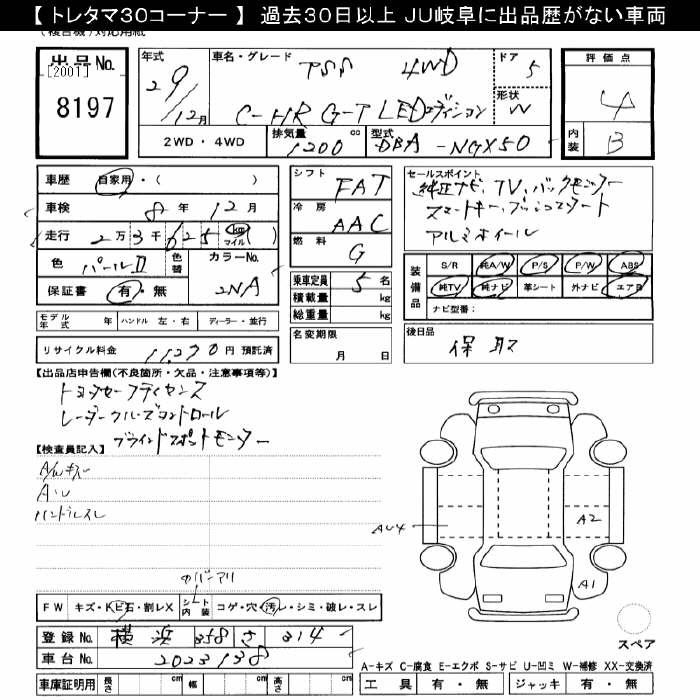 【トレタマ30コーナー】 過去30日以上 JU岐阜に出品歴がない車両
(複合機)対応用紙
出品No.
[2001]
8197
年式
29/12月
車名・グレード
トヨタ 4WD
C-HR G-T LEDエディション
ドア 5
形状 W
評価点
4
内装 B
2WD・4WD
排気量 1200 cc
型式 DBA-NGX50
車歴 自家用・( )
車検 8年 12月
走行 2万3千625 km マイル ( )
色 パールII
色替
カラーNo. 2NA
保証書 有・無
シフト FAT
冷房 AAC
燃料 G
乗車定員 5名
積載量 kg
総重量 kg
名変期限 月 日
セールスポイント
純正ナビ、TV、バックモニター
スマートキー、プッシュスタート
アルミホイール
装備品
S/R 純A/W P/S P/W ABS
純TV 純ナビ 革シート 外ナビ エアB
ナビ型番:
モデル年式 年 ハンドル 左・右 ディーラー・並行
リサイクル料金 11,270円 預託済
後日品
保 取
【出品店申告欄(不良箇所・欠品・注意事項等)】
トヨタセーフティセンス
レーダークルーズコントロール
ブラインドスポットモニター
【検査員記入】
A/Wキズ
A・U
ハンドルスレ
AU4
A2
A1
FW キズ・ヒビ石・割レX
シート内装 コゲ・穴・汚レ・シミ・破レ・スレ
登録No. 横浜 358 さ 314
車台No. 2023138
車庫証明用 長さ cm 幅 cm 高さ cm
スペア
A-キズ C-腐食 E-エクボ S-サビ U-凹ミ W-補修 XX-交換済
工具 有・無 ジャッキ 有・無